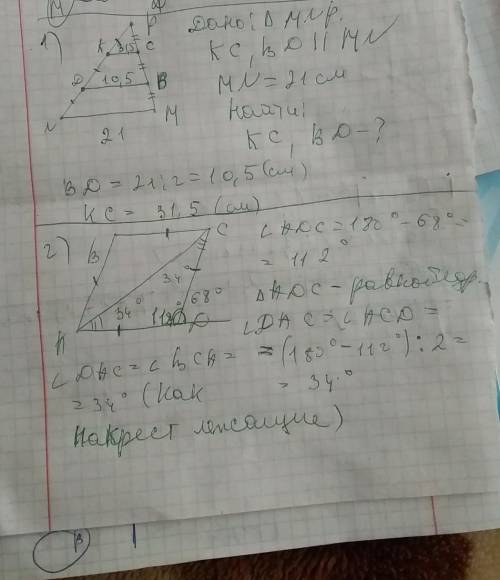 M
1)
P
K 3,5 C
D 10,5 B
N M
21
Дано: Δ MNP.
KC, BD || MN
MN = 21 см
Найти:
KC, BD - ?
BD = 21 : 2 = 10,5 (см)
KC = 31,5 (см)
2)
B C
34°
34° 68°
112°
A D
∠ADC = 180° - 68° =
= 112°
ΔADC - равнобедр.
∠DAC = ∠ACD =
= (180° - 112°) : 2 =
= 34°
∠DAC = ∠BCA =
= 34° (как
накрест лежащие)
B